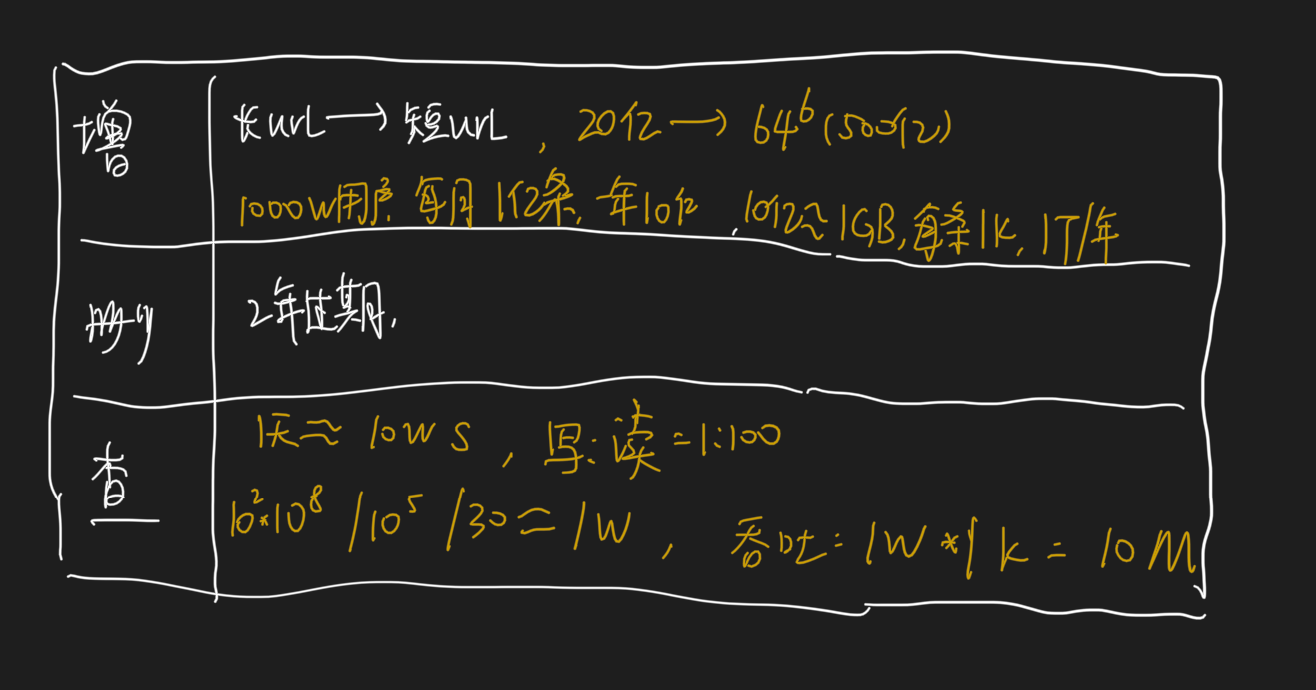 增
长urL→短urL, 20亿→64^6(500亿)
1000W用户,每月1亿条,年10亿,10亿≈1GB,每条1K,1T/年
删
2年过期,
查
1天≈10W S, 写:读=1:100
10^2*10^8/10^5/30≈1W, 吞吐:1W*1K=10M